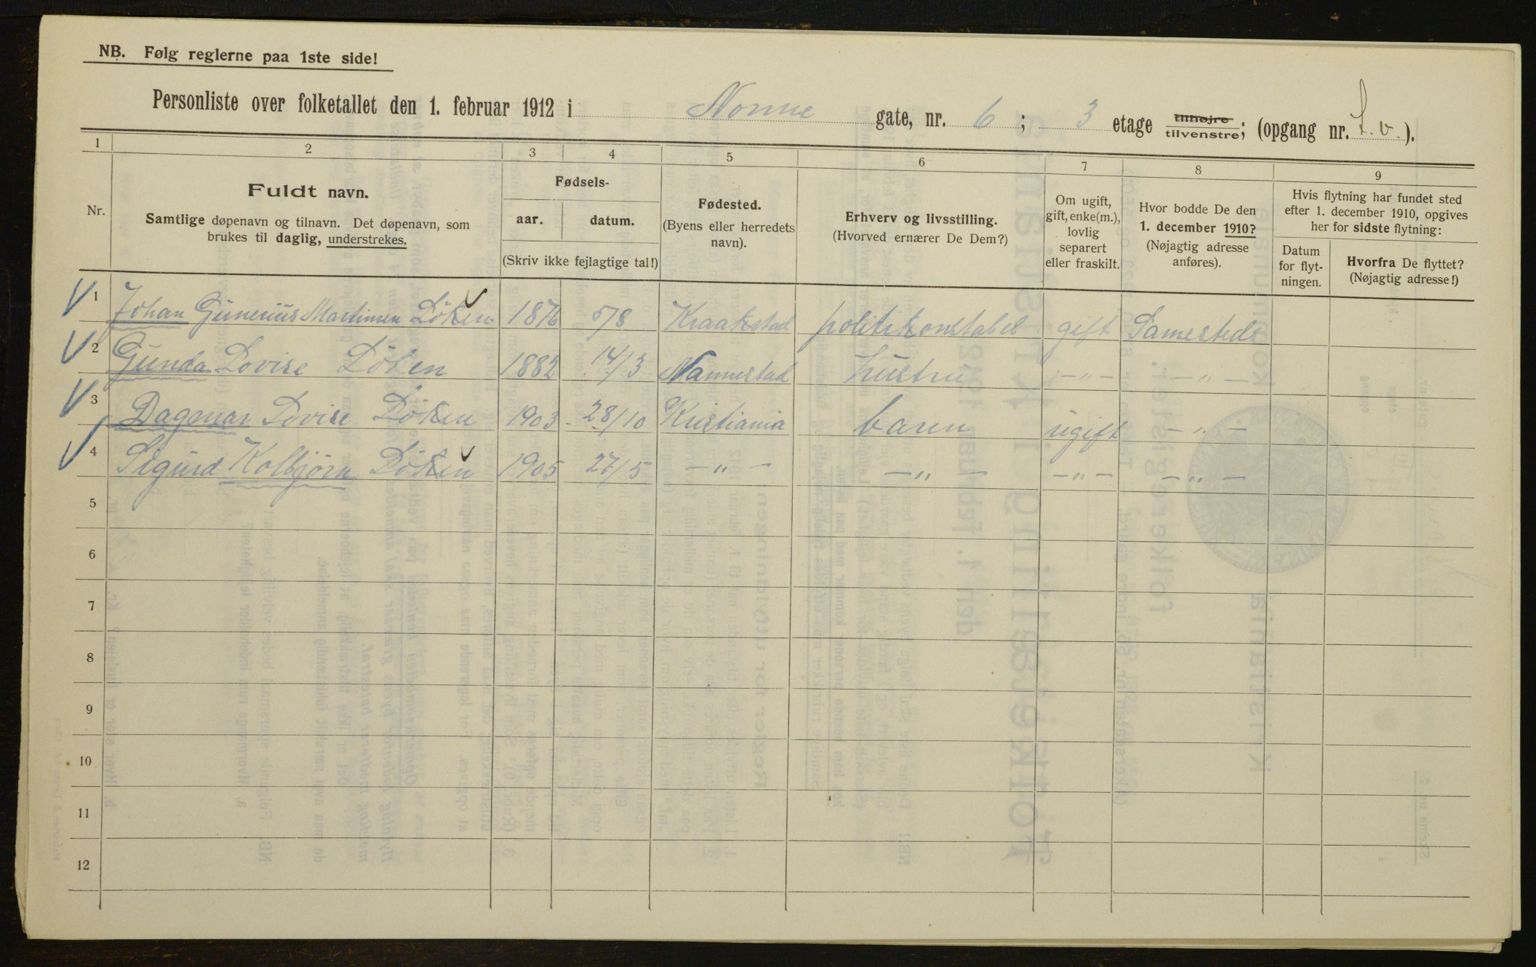 NB. Følg reglerne paa 1ste side!
Personliste over folketallet den 1. februar 1912 i Nonne gate, nr. 6; 3 etage tilhøjre tilvenstre; (opgang nr. L. v.).
1 2 3 4 5 6 7 8 9
Nr.
Fuldt navn.
Samtlige døpenavn og tilnavn. Det døpenavn, som
brukes til daglig, understrekes.
Fødsels-
aar. datum.
(Skriv ikke fejlagtige tal!)
Fødested.
(Byens eller herredets
navn).
Erhverv og livsstilling.
(Hvorved ernærer De Dem?)
Om ugift,
gift, enke(m.),
lovlig
separert
eller fraskilt.
Hvor bodde De den
1. december 1910?
(Nøjagtig adresse
anføres).
Hvis flytning har fundet sted
efter 1. december 1910, opgives
her for sidste flytning:
Datum
for flyt-
ningen.
Hvorfra De flyttet?
(Nøjagtig adresse!)
1 Johan Gunerius Martinsen Löken 1876 5/8 Kraakstad politikonstabel gift Samesteds
2 Gunda Lovise Löken 1882 14/3 Nannestad hustru — „ — — „ —
3 Dagmar Lovise Löken 1903 28/10 Kristiania barn ugift — „ —
4 Sigurd Kolbjørn Löken 1905 27/5 — „ — — „ — — „ — — „ —
5
6
7
8
9
10
11
12